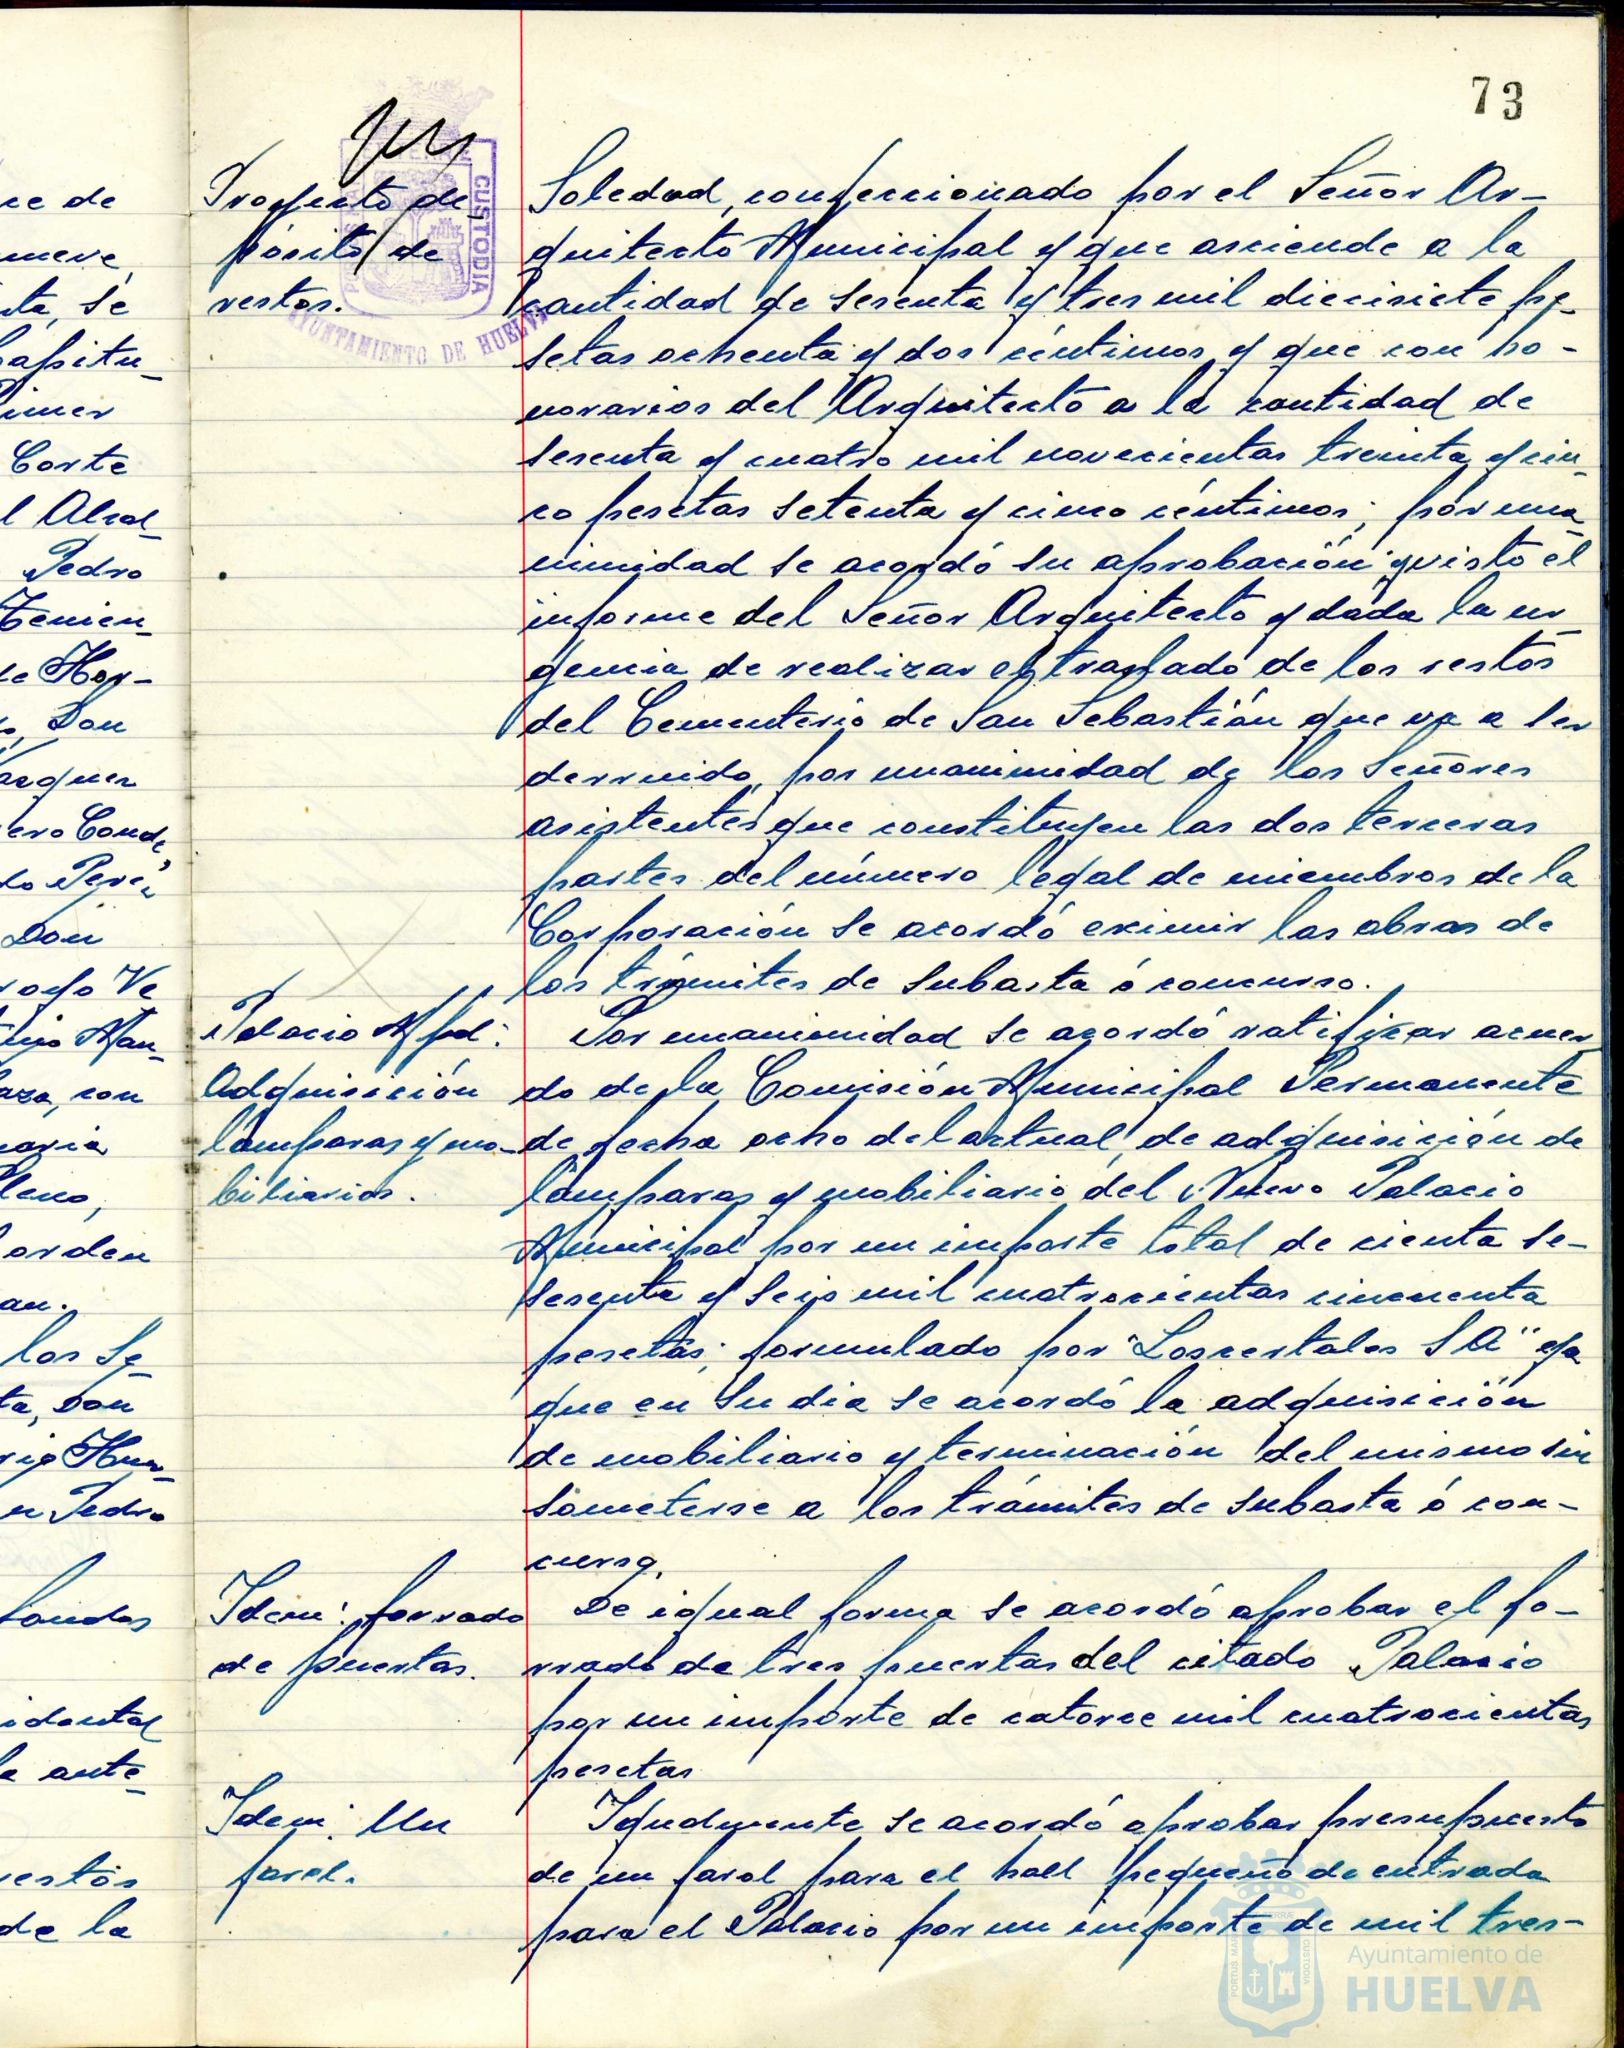 73
Proyecto de-
pósito de
restos.
PORTUS MARIS CUSTODIA
AYUNTAMIENTO DE HUELVA
Soledad, confeccionado por el Señor Ar-
quitecto Municipal y que asciende a la
cantidad de sesenta y tres mil diecisiete pe-
setas ochenta y dos céntimos y que con ho-
norarios del Arquitecto a la cantidad de
sesenta y cuatro mil novecientas treinta y cin-
co pesetas setenta y cinco céntimos; por una-
nimidad se acordó su aprobación y visto el
informe del Señor Arquitecto y dada la ur-
gencia de realizar el traslado de los restos
del Cementerio de San Sebastián que va a ser
derruido, por unanimidad de los Señores
asistentes que constituyen las dos terceras
partes del número legal de miembros de la
Corporación se acordó eximir las obras de
los trámites de subasta ó concurso.
Palacio Mpal:
Adquisición
lámparas y mo-
biliarios.
Por unanimidad se acordó ratificar acuer-
do de la Comisión Municipal Permanente
de fecha ocho del actual, de adquisición de
lámparas y mobiliario del Nuevo Palacio
Municipal por un importe total de cienta se-
sesenta y seis mil cuatrocientas cincuenta
pesetas; formulado por "Loscertales S A" ya
que en su dia se acordó la adquisición
de mobiliario y terminación del mismo sin
someterse a los trámites de subasta ó con-
curso.
Idem: forrado
de puertas.
De igual forma se acordó aprobar el fo-
rrado de tres puertas del citado Palacio
por un importe de catorce mil cuatrocientas
pesetas
Idem: Un
farol.
Igualmente se acordó aprobar presupuesto
de un farol para el hall pequeño de entrada
para el Palacio por un importe de mil tres-
ce de
nueve
nta, se
Capitu-
rimer
Corte
l Alcal-
Pedro
Tenien-
de Her-
Don
azquez
ero Conde
do Pere
Don
royo Ve
Man-
laza, con
naria
Pleno,
orden
an.
los Se-
ta, Don
rig Hua-
n Pedro
idental
la ante-
restos
de la
Ayuntamiento de
HUELVA